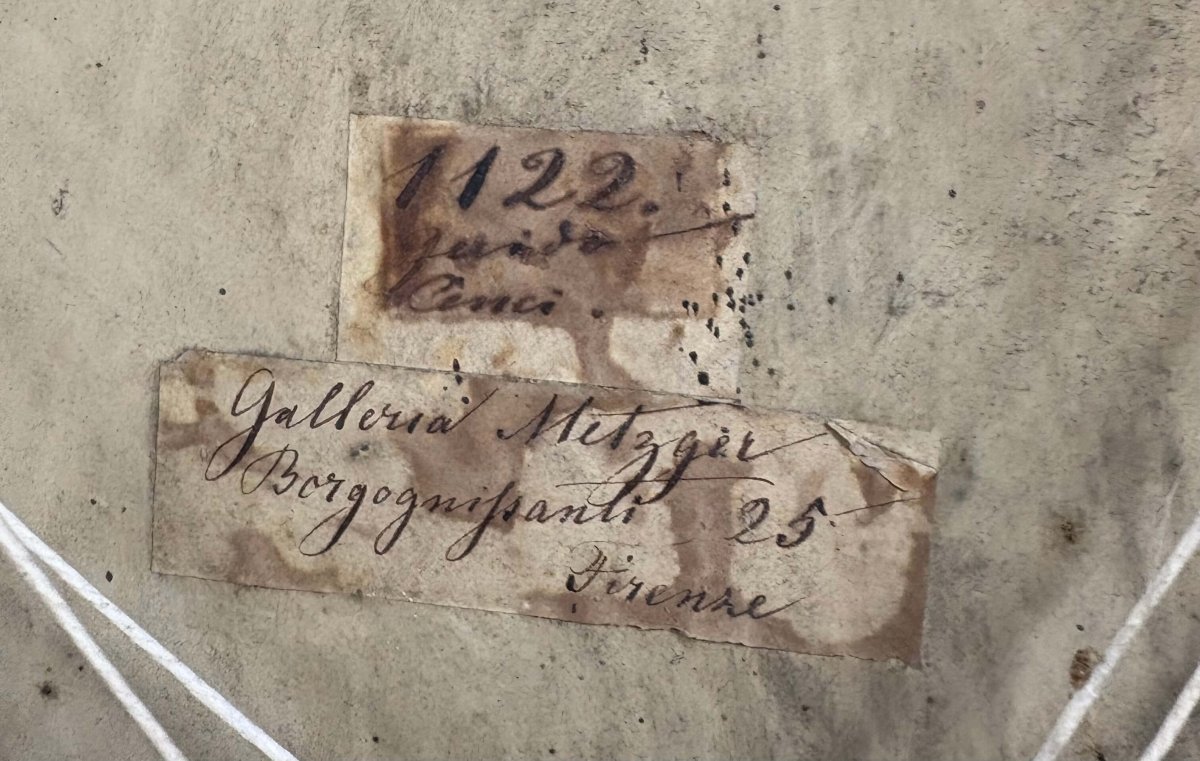 1122.
guido
Cenci
Galleria Metzger
Borgognissanti 25.
Firenze